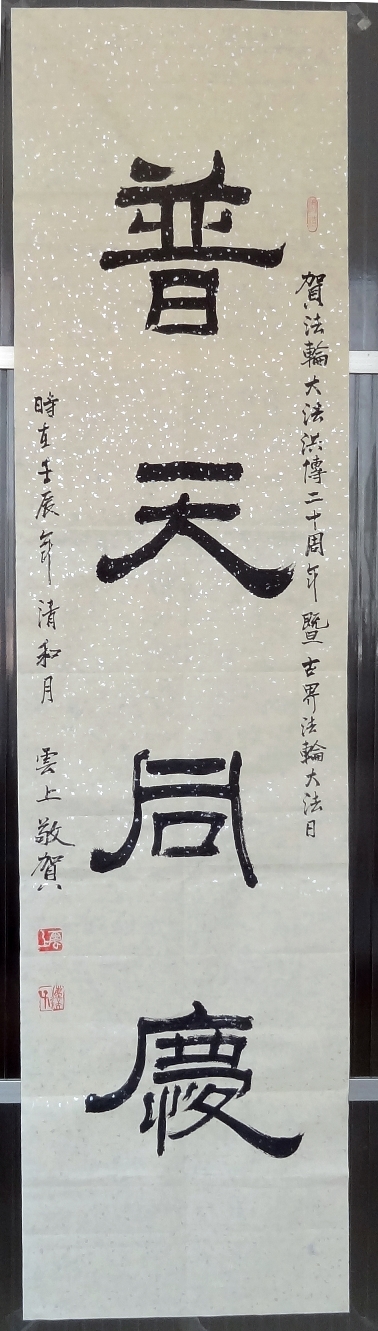 賀法輪大法洪傳二十周年暨世界法輪大法日
普天同慶
時在壬辰年清和月 雲上敬賀